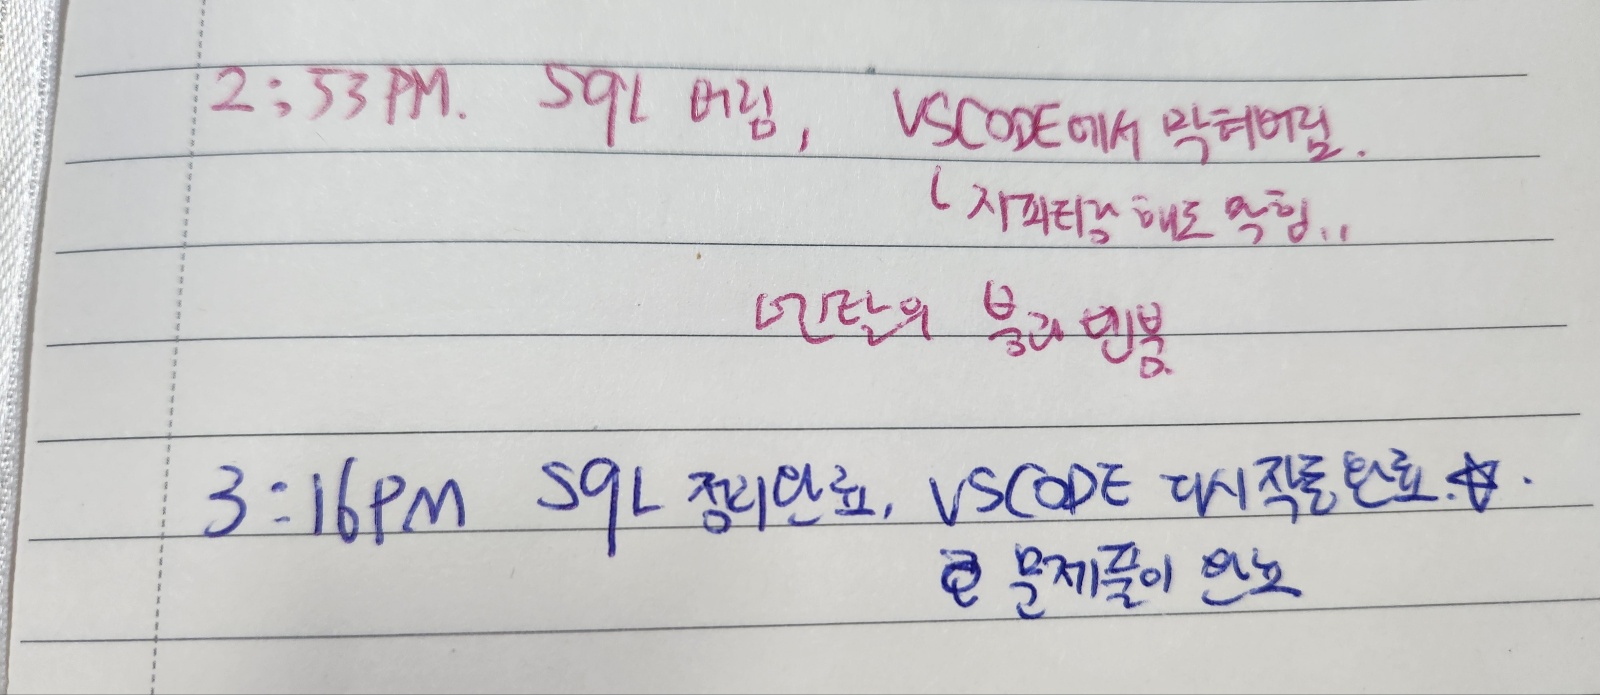 2:53PM. SQL 버림, VSCODE에서 막혀버림.
ㄴ 지피티랑 해도 막힘..
멘탈의 붕괴 멘붕
3:16PM SQL 정리완료, VSCODE 다시작동완료.☆.
문제풀이 완료